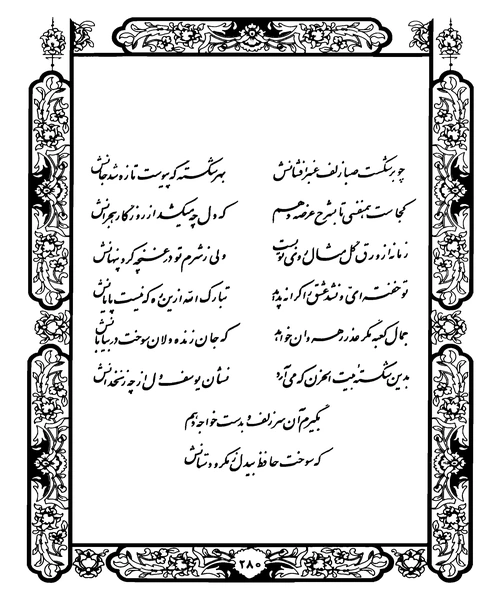 چو برشکست صبا زلف عنبرافشانش بهر شکسته که پیوست تازه شد جانش
کجاست همنفسی تا بشرح عرضه دهم که دل چه میکشد از روزگار هجرانش
زمانه از ورق گل مثال روی تو بست ولی ز شرم تو در غنچه کرد پنهانش
تو خفته‌ای و نشد عشق را کرانه پدید تبارک الله ازین ره که نیست پایانش
جمال کعبه مگر عذر رهروان خواهد که جان زنده دلان سوخت در بیابانش
بدین شکستهٔ بیت الحزن که می‌آرد نشان یوسف دل از چه زنخدانش
بگیرم آن سر زلف و بدست خواجه دهم
که سوخت حافظ بیدل ز مکر و دستانش
۲۸۰